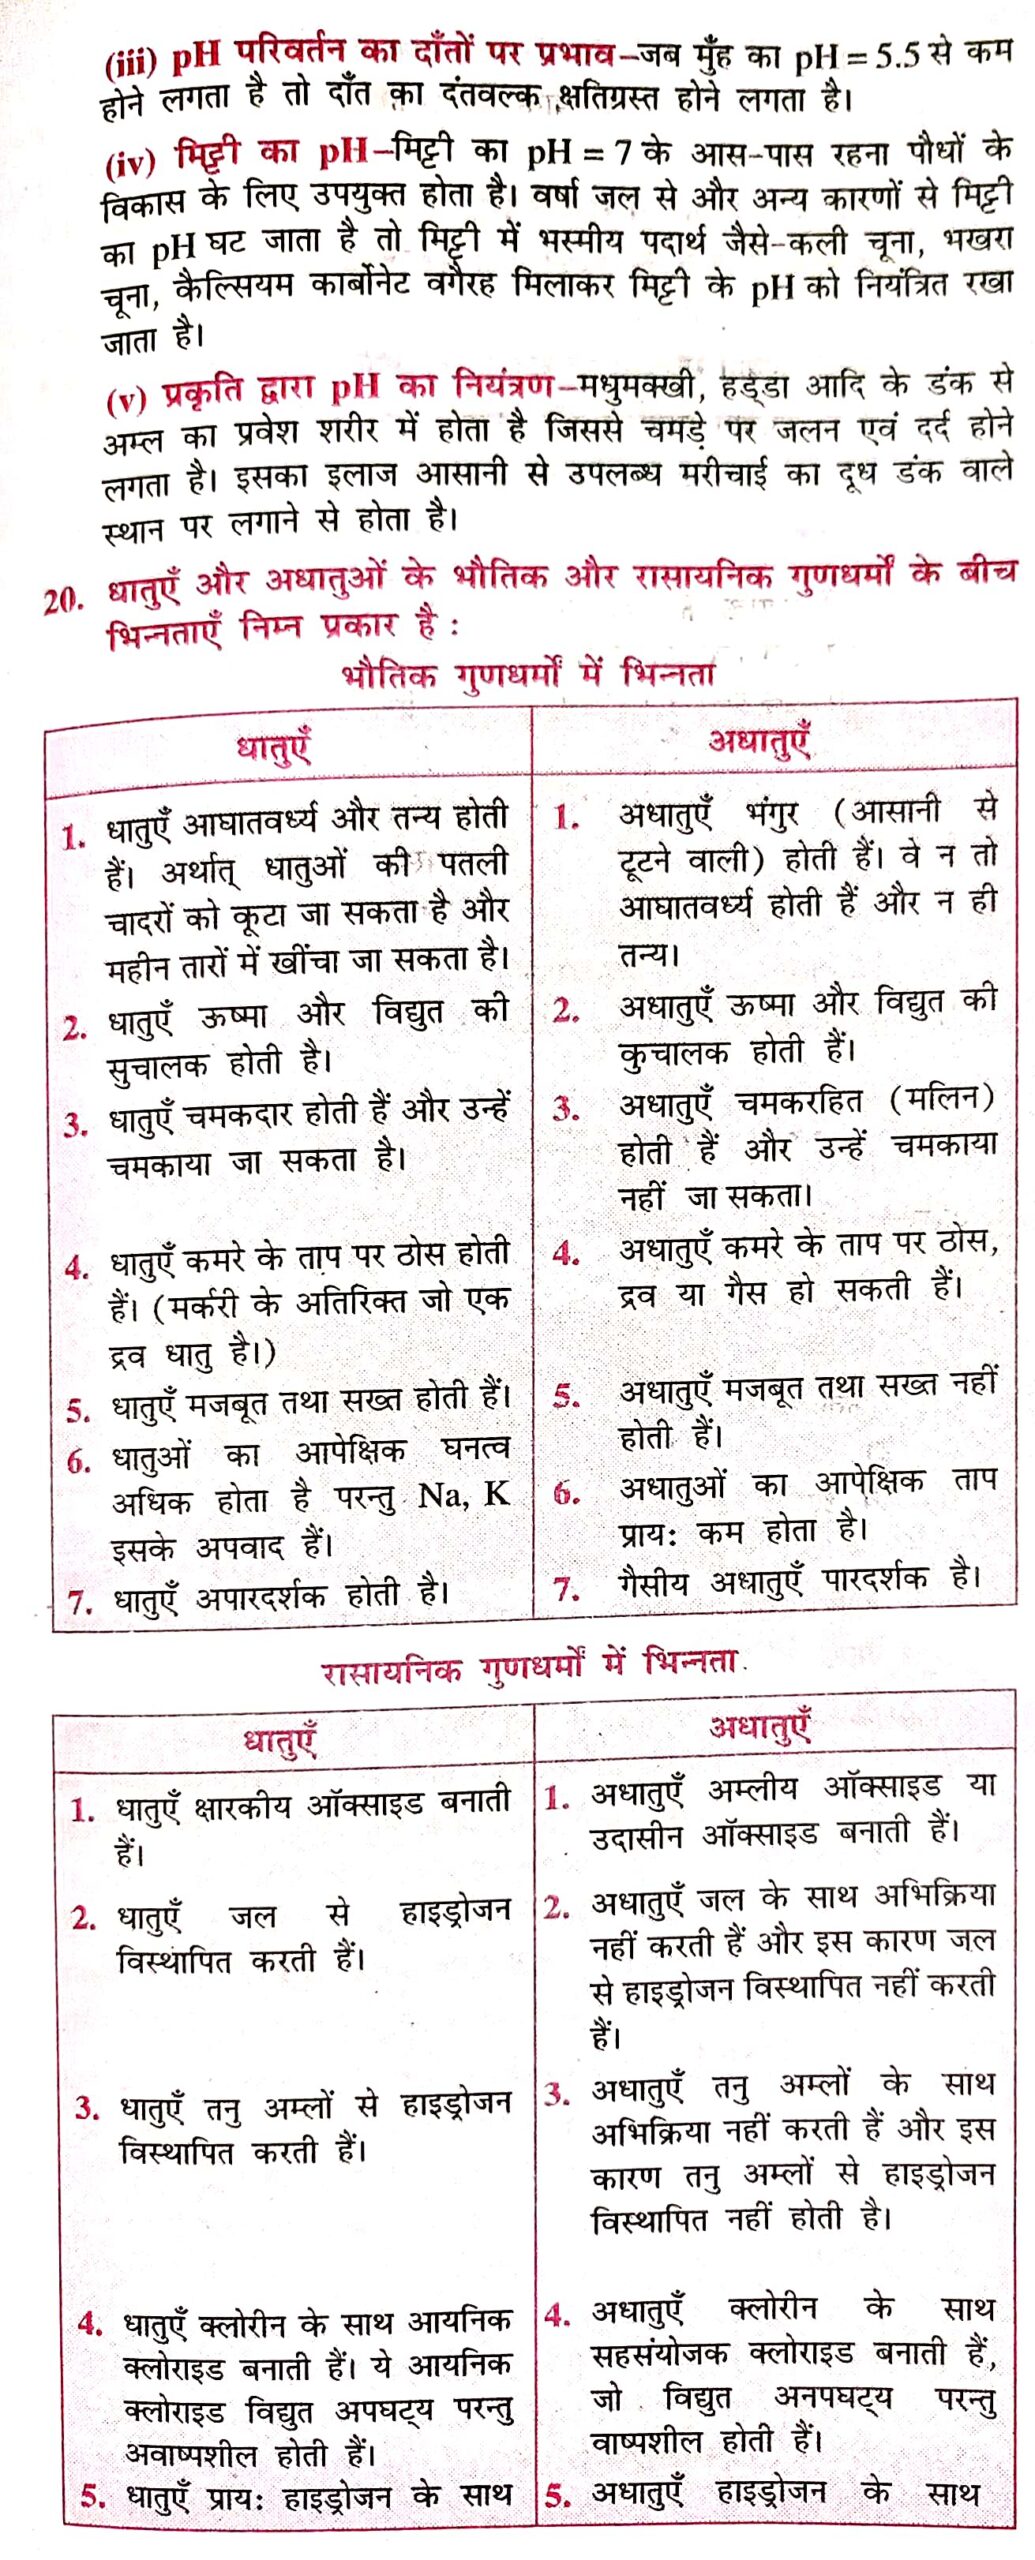 (iii) pH परिवर्तन का दाँतों पर प्रभाव–जब मुँह का pH = 5.5 से कम
होने लगता है तो दाँत का दंतवल्क क्षतिग्रस्त होने लगता है।
(iv) मिट्टी का pH–मिट्टी का pH = 7 के आस-पास रहना पौधों के
विकास के लिए उपयुक्त होता है। वर्षा जल से और अन्य कारणों से मिट्टी
का pH घट जाता है तो मिट्टी में भस्मीय पदार्थ जैसे-कली चूना, भखरा
चूना, कैल्सियम कार्बोनेट वगैरह मिलाकर मिट्टी के pH को नियंत्रित रखा
जाता है।
(v) प्रकृति द्वारा pH का नियंत्रण–मधुमक्खी, हड्डा आदि के डंक से
अम्ल का प्रवेश शरीर में होता है जिससे चमड़े पर जलन एवं दर्द होने
लगता है। इसका इलाज आसानी से उपलब्ध मरीचाई का दूध डंक वाले
स्थान पर लगाने से होता है।
20. धातुएँ और अधातुओं के भौतिक और रासायनिक गुणधर्मों के बीच
भिन्नताएँ निम्न प्रकार है :
भौतिक गुणधर्मों में भिन्नता
धातुएँ
1. धातुएँ आघातवर्ध्य और तन्य होती
हैं। अर्थात् धातुओं की पतली
चादरों को कूटा जा सकता है और
महीन तारों में खींचा जा सकता है।
2. धातुएँ ऊष्मा और विद्युत की
सुचालक होती है।
3. धातुएँ चमकदार होती हैं और उन्हें
चमकाया जा सकता है।
4. धातुएँ कमरे के ताप पर ठोस होती
हैं। (मर्करी के अतिरिक्त जो एक
द्रव धातु है।)
5. धातुएँ मजबूत तथा सख्त होती हैं।
6. धातुओं का आपेक्षिक घनत्व
अधिक होता है परन्तु Na, K
इसके अपवाद हैं।
7. धातुएँ अपारदर्शक होती है।
अधातुएँ
1. अधातुएँ भंगुर (आसानी से
टूटने वाली) होती हैं। वे न तो
आघातवर्ध्य होती हैं और न ही
तन्य।
2. अधातुएँ ऊष्मा और विद्युत की
कुचालक होती हैं।
3. अधातुएँ चमकरहित (मलिन)
होती हैं और उन्हें चमकाया
नहीं जा सकता।
4. अधातुएँ कमरे के ताप पर ठोस,
द्रव या गैस हो सकती हैं।
5. अधातुएँ मजबूत तथा सख्त नहीं
होती हैं।
6. अधातुओं का आपेक्षिक ताप
प्राय: कम होता है।
7. गैसीय अधातुएँ पारदर्शक है।
रासायनिक गुणधर्मों में भिन्नता
धातुएँ
1. धातुएँ क्षारकीय ऑक्साइड बनाती
हैं।
2. धातुएँ जल से हाइड्रोजन
विस्थापित करती हैं।
3. धातुएँ तनु अम्लों से हाइड्रोजन
विस्थापित करती हैं।
4. धातुएँ क्लोरीन के साथ आयनिक
क्लोराइड बनाती हैं। ये आयनिक
क्लोराइड विद्युत अपघट्य परन्तु
अवाष्पशील होती हैं।
5. धातुएँ प्राय: हाइड्रोजन के साथ
अधातुएँ
1. अधातुएँ अम्लीय ऑक्साइड या
उदासीन ऑक्साइड बनाती हैं।
2. अधातुएँ जल के साथ अभिक्रिया
नहीं करती हैं और इस कारण जल
से हाइड्रोजन विस्थापित नहीं करती
हैं।
3. अधातुएँ तनु अम्लों के साथ
अभिक्रिया नहीं करती हैं और इस
कारण तनु अम्लों से हाइड्रोजन
विस्थापित नहीं होती है।
4. अधातुएँ क्लोरीन के साथ
सहसंयोजक क्लोराइड बनाती हैं,
जो विद्युत अनपघट्य परन्तु
वाष्पशील होती हैं।
5. अधातुएँ हाइड्रोजन के साथ